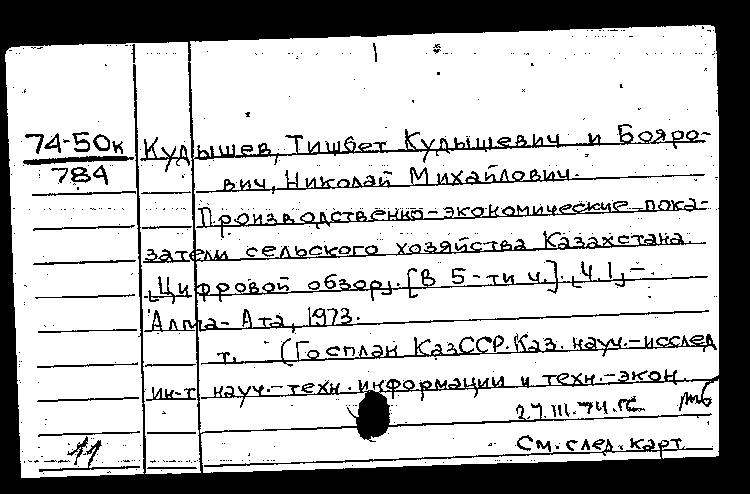 74-50к
784
Кудышев, Тишбек Кудышевич и Бояро-
вич, Николай Михайлович.
Производственно-экономические пока-
затели сельского хозяйства Казахстана.
„Цифровой обзор„. [В 5-ти ч.]. „Ч. 1„ –
Алма-Ата, 1973.
т. (Госплан КазССР. Каз. науч.-исслед
ин-т науч.-техн. информации и техн.-экон.
27.III.74.
См. след. карт.
11